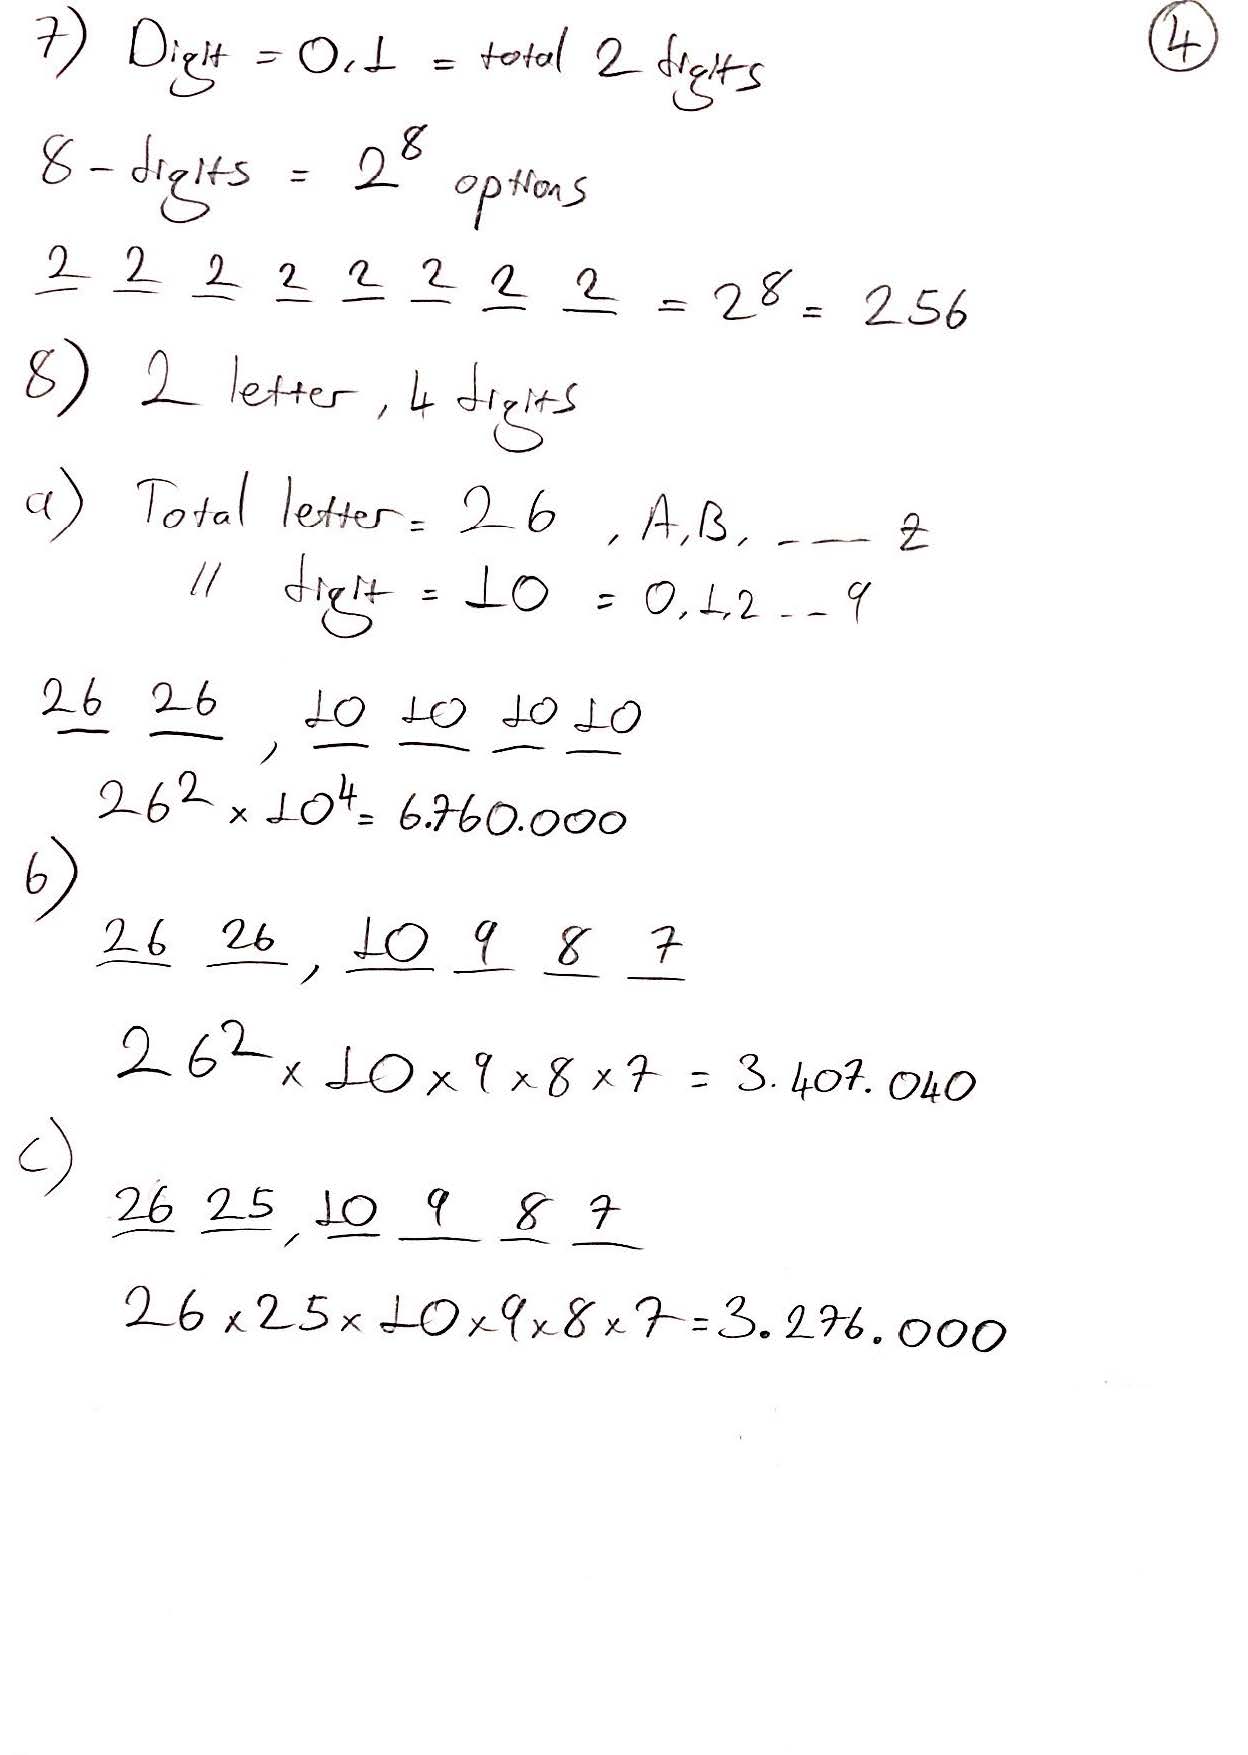 7) Digit = 0,1 = total 2 digits
4
8-digits = 2⁸ options
2 2 2 2 2 2 2 2 = 2⁸ = 256
8) 2 letter, 4 digits
a) Total letter = 26 , A,B, - — — Z
" digit = 10 = 0,1,2 - - 9
26 26 , 10 10 10 10
26² × 10⁴ = 6.760.000
b)
26 26 , 10 9 8 7
26² × 10 × 9 × 8 × 7 = 3.407.040
c)
26 25 , 10 9 8 7
26 × 25 × 10 × 9 × 8 × 7 = 3.276.000